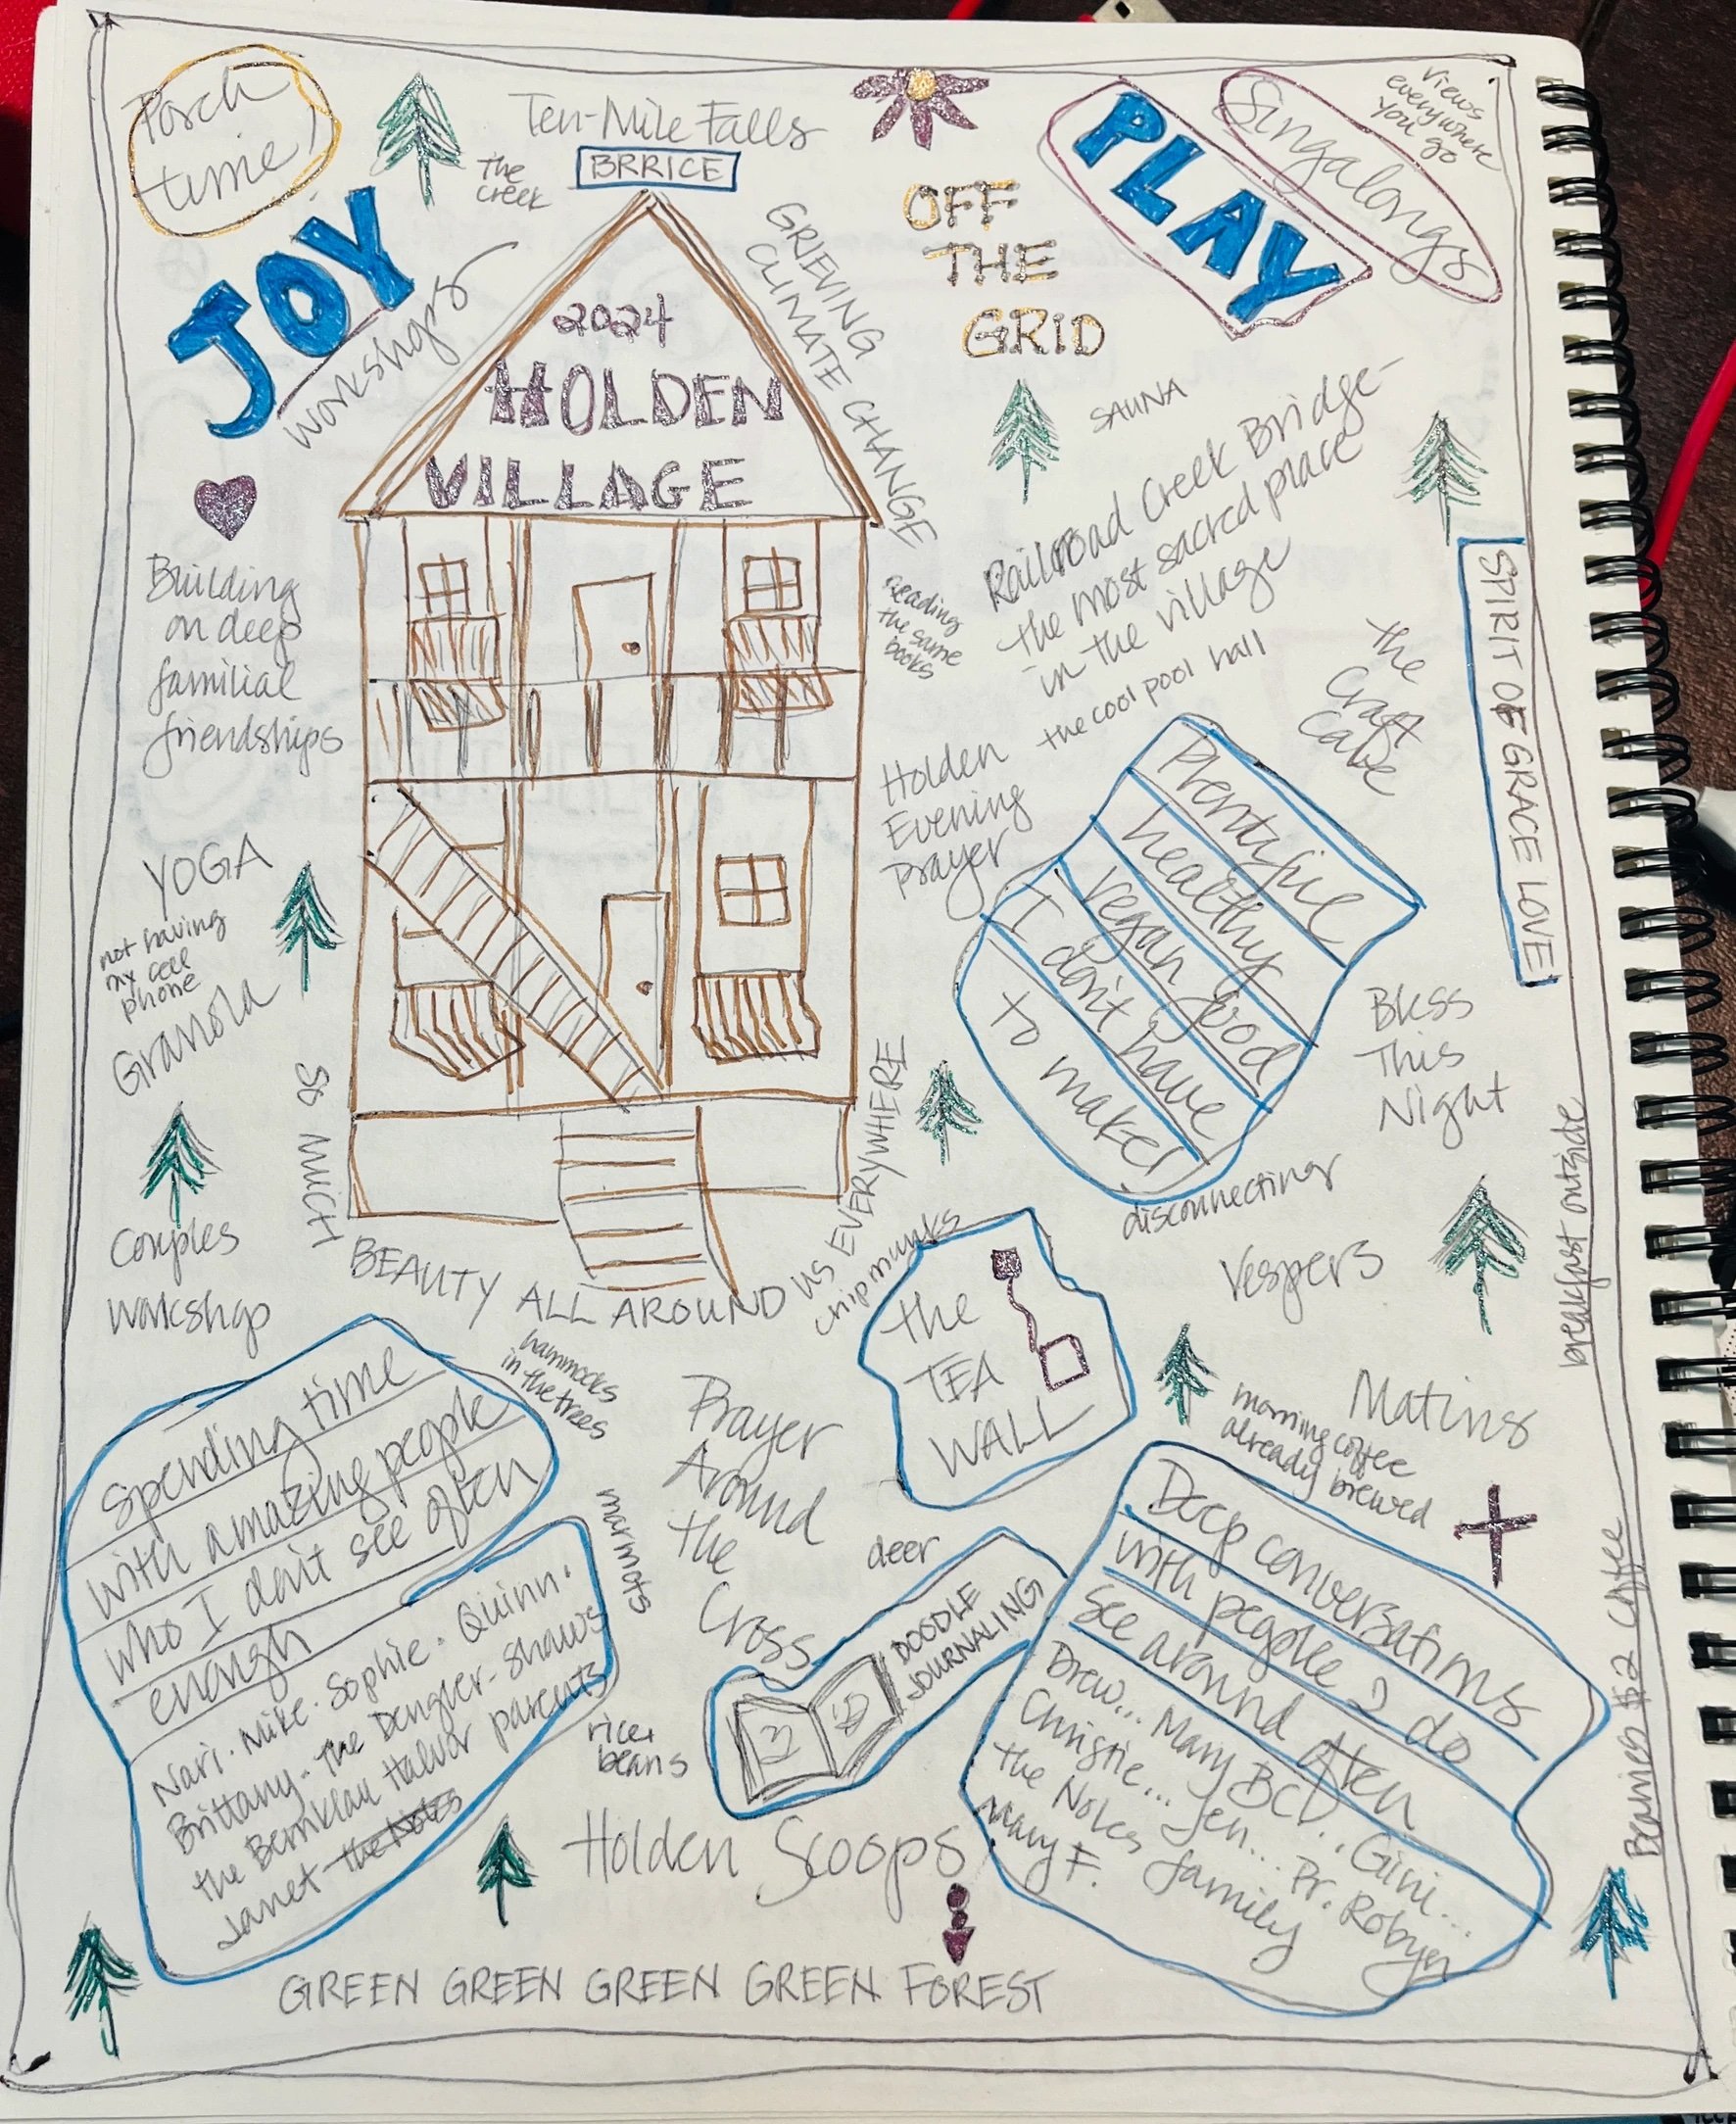 Porch
time!
Ten-Mile Falls
BRRICE
The
Creek
JOY
workshops
GRIEVING
CLIMATE CHANGE
OFF
THE
GRID
PLAY
Singalongs
views
everywhere
you go
2024
HOLDEN
VILLAGE
SAUNA
Railroad Creek Bridge-
the most sacred place
in the village
the cool pool hall
reading
the same
books
the
Craft
Cave
SPIRIT OF GRACE LOVE!
Building
on deep
familial
friendships
Holden
Evening
Prayer
Plentiful
healthy
vegan food
I don't have
to make!
YOGA
not having
my cell
phone
Granola
Bless
This
Night
SO MUCH
BEAUTY ALL AROUND US EVERYWHERE
Couples
Workshop
chipmunks
disconnecting
Vespers
breakfast outside
the
TEA
WALL
hammocks
in the trees
Prayer
Around
the
Cross
Matins
morning coffee
already brewed
Spending time
with amazing people
who I don't see often
enough
Nari. Mike. Sophie. Quinn.
Brittany. The Dengler-Shaws
the Bernklau Halvor parents
Janet the Noles
marmots
deer
DOODLE
JOURNALING
rice +
beans
Deep conversations
with people I do
see around often
Drew... Mary BCD... Gini...
Christie... Jen... Pr. Robyn
the Noles family
Mary F.
Beanies $2 coffee
Holden Scoops
GREEN GREEN GREEN GREEN FOREST